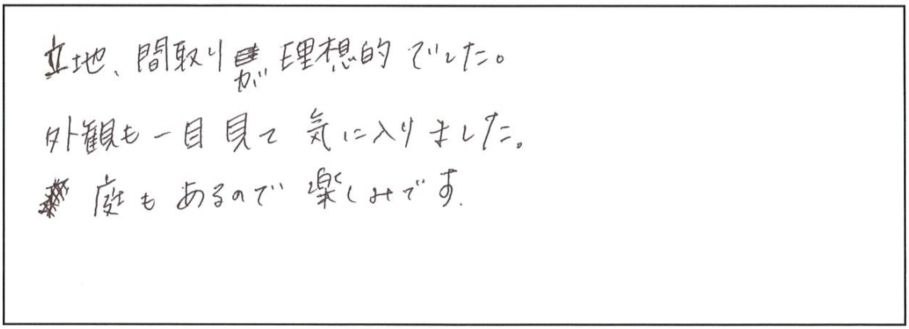 立地、間取りが理想的でした。
外観も一目見て気に入りました。
庭もあるので楽しみです.